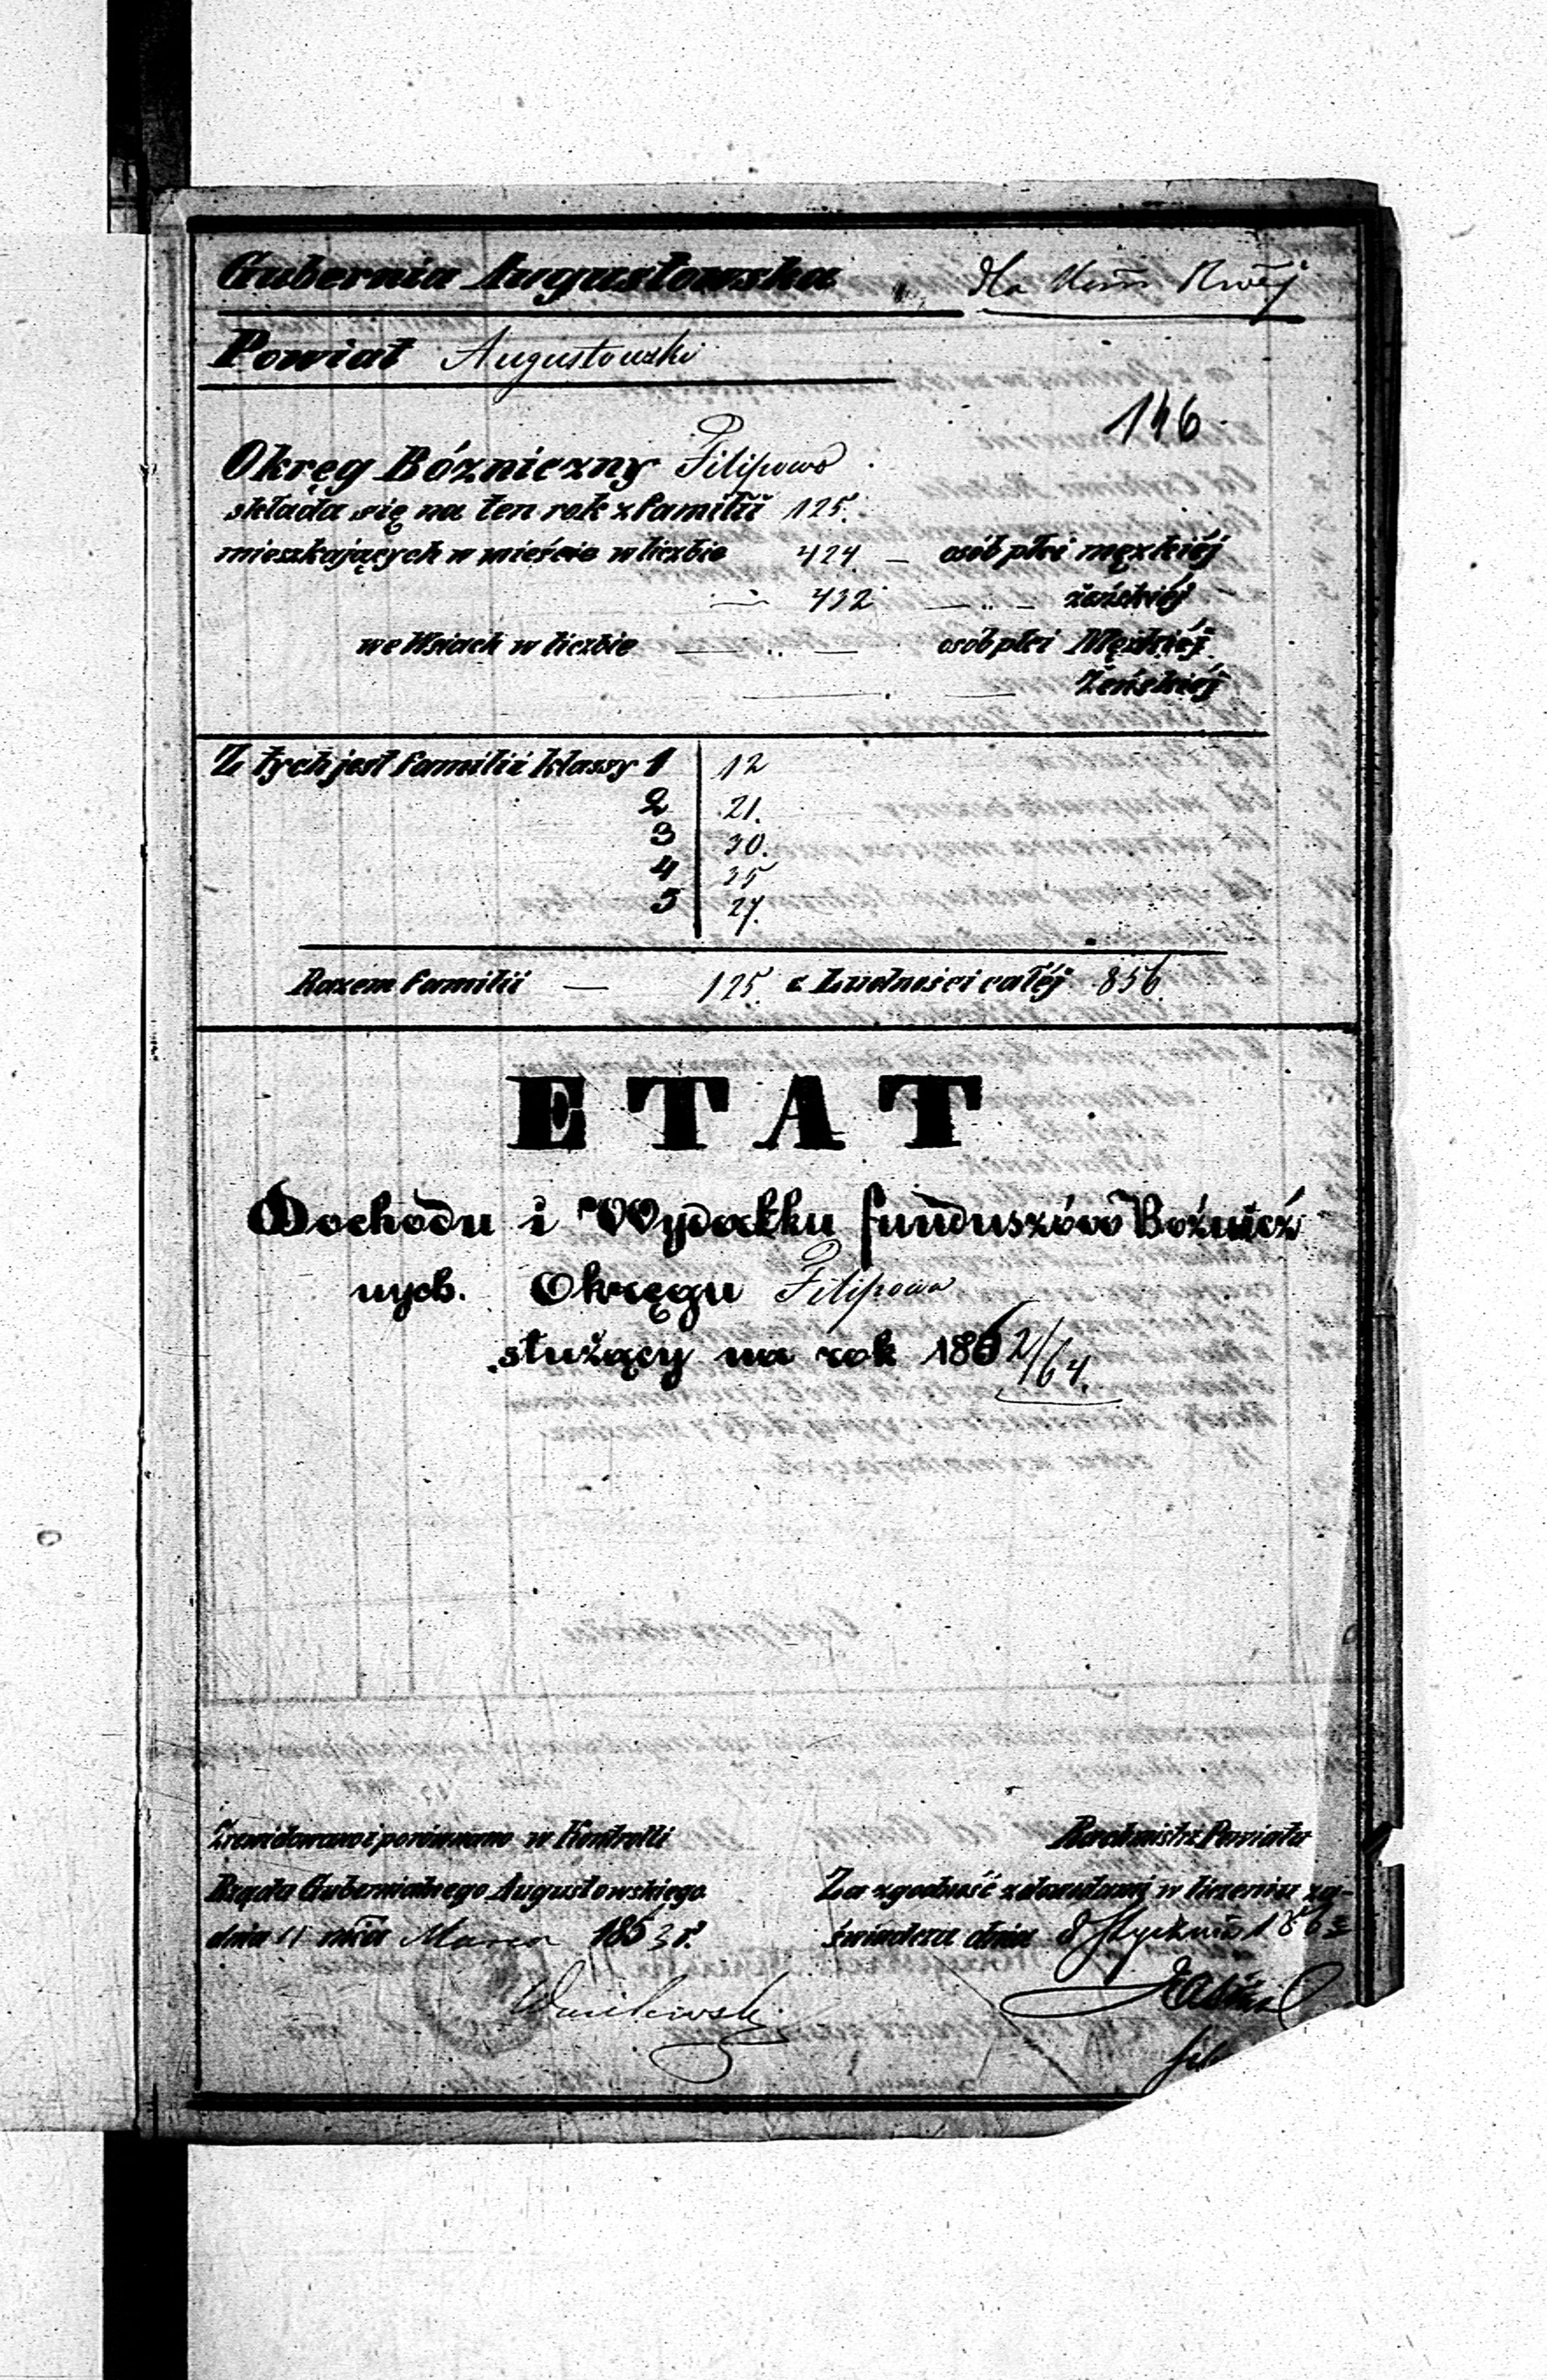 Gubernia Augustowska dla Kom Rząj
Powiat Augustowski
146
Okręg Bózniczny Filipowo
składa się na ten rok z familii 125.
mieszkających w mieście w liczbie 424 — osób płci męzkiéj
— 432 — „ — żeńskiéj
we Wsiach w liczbie — „ — osób płci Męzkiéj
— — Żeńskiéj
Z tych jest familii klassy 1 12
2 21.
3 30.
4 35
5 27.
Razem familii — 125. a Ludności całéj 856.
ETAT
Dochodu i Wydatku funduszów Boźnicz
nych. Okręgu Filipowa
służący na rok 1862/64.
Zrewidowano i porównano w Kontrolli
Rządu Gubernialnego Augustowskiego
dnia 11 mca Marca 1863 r.
Rachmistrz Powiatu
Za zgodność z dowodami w liczeniu za-
świadcza dnia 8 Stycznia 186
Wasilewski